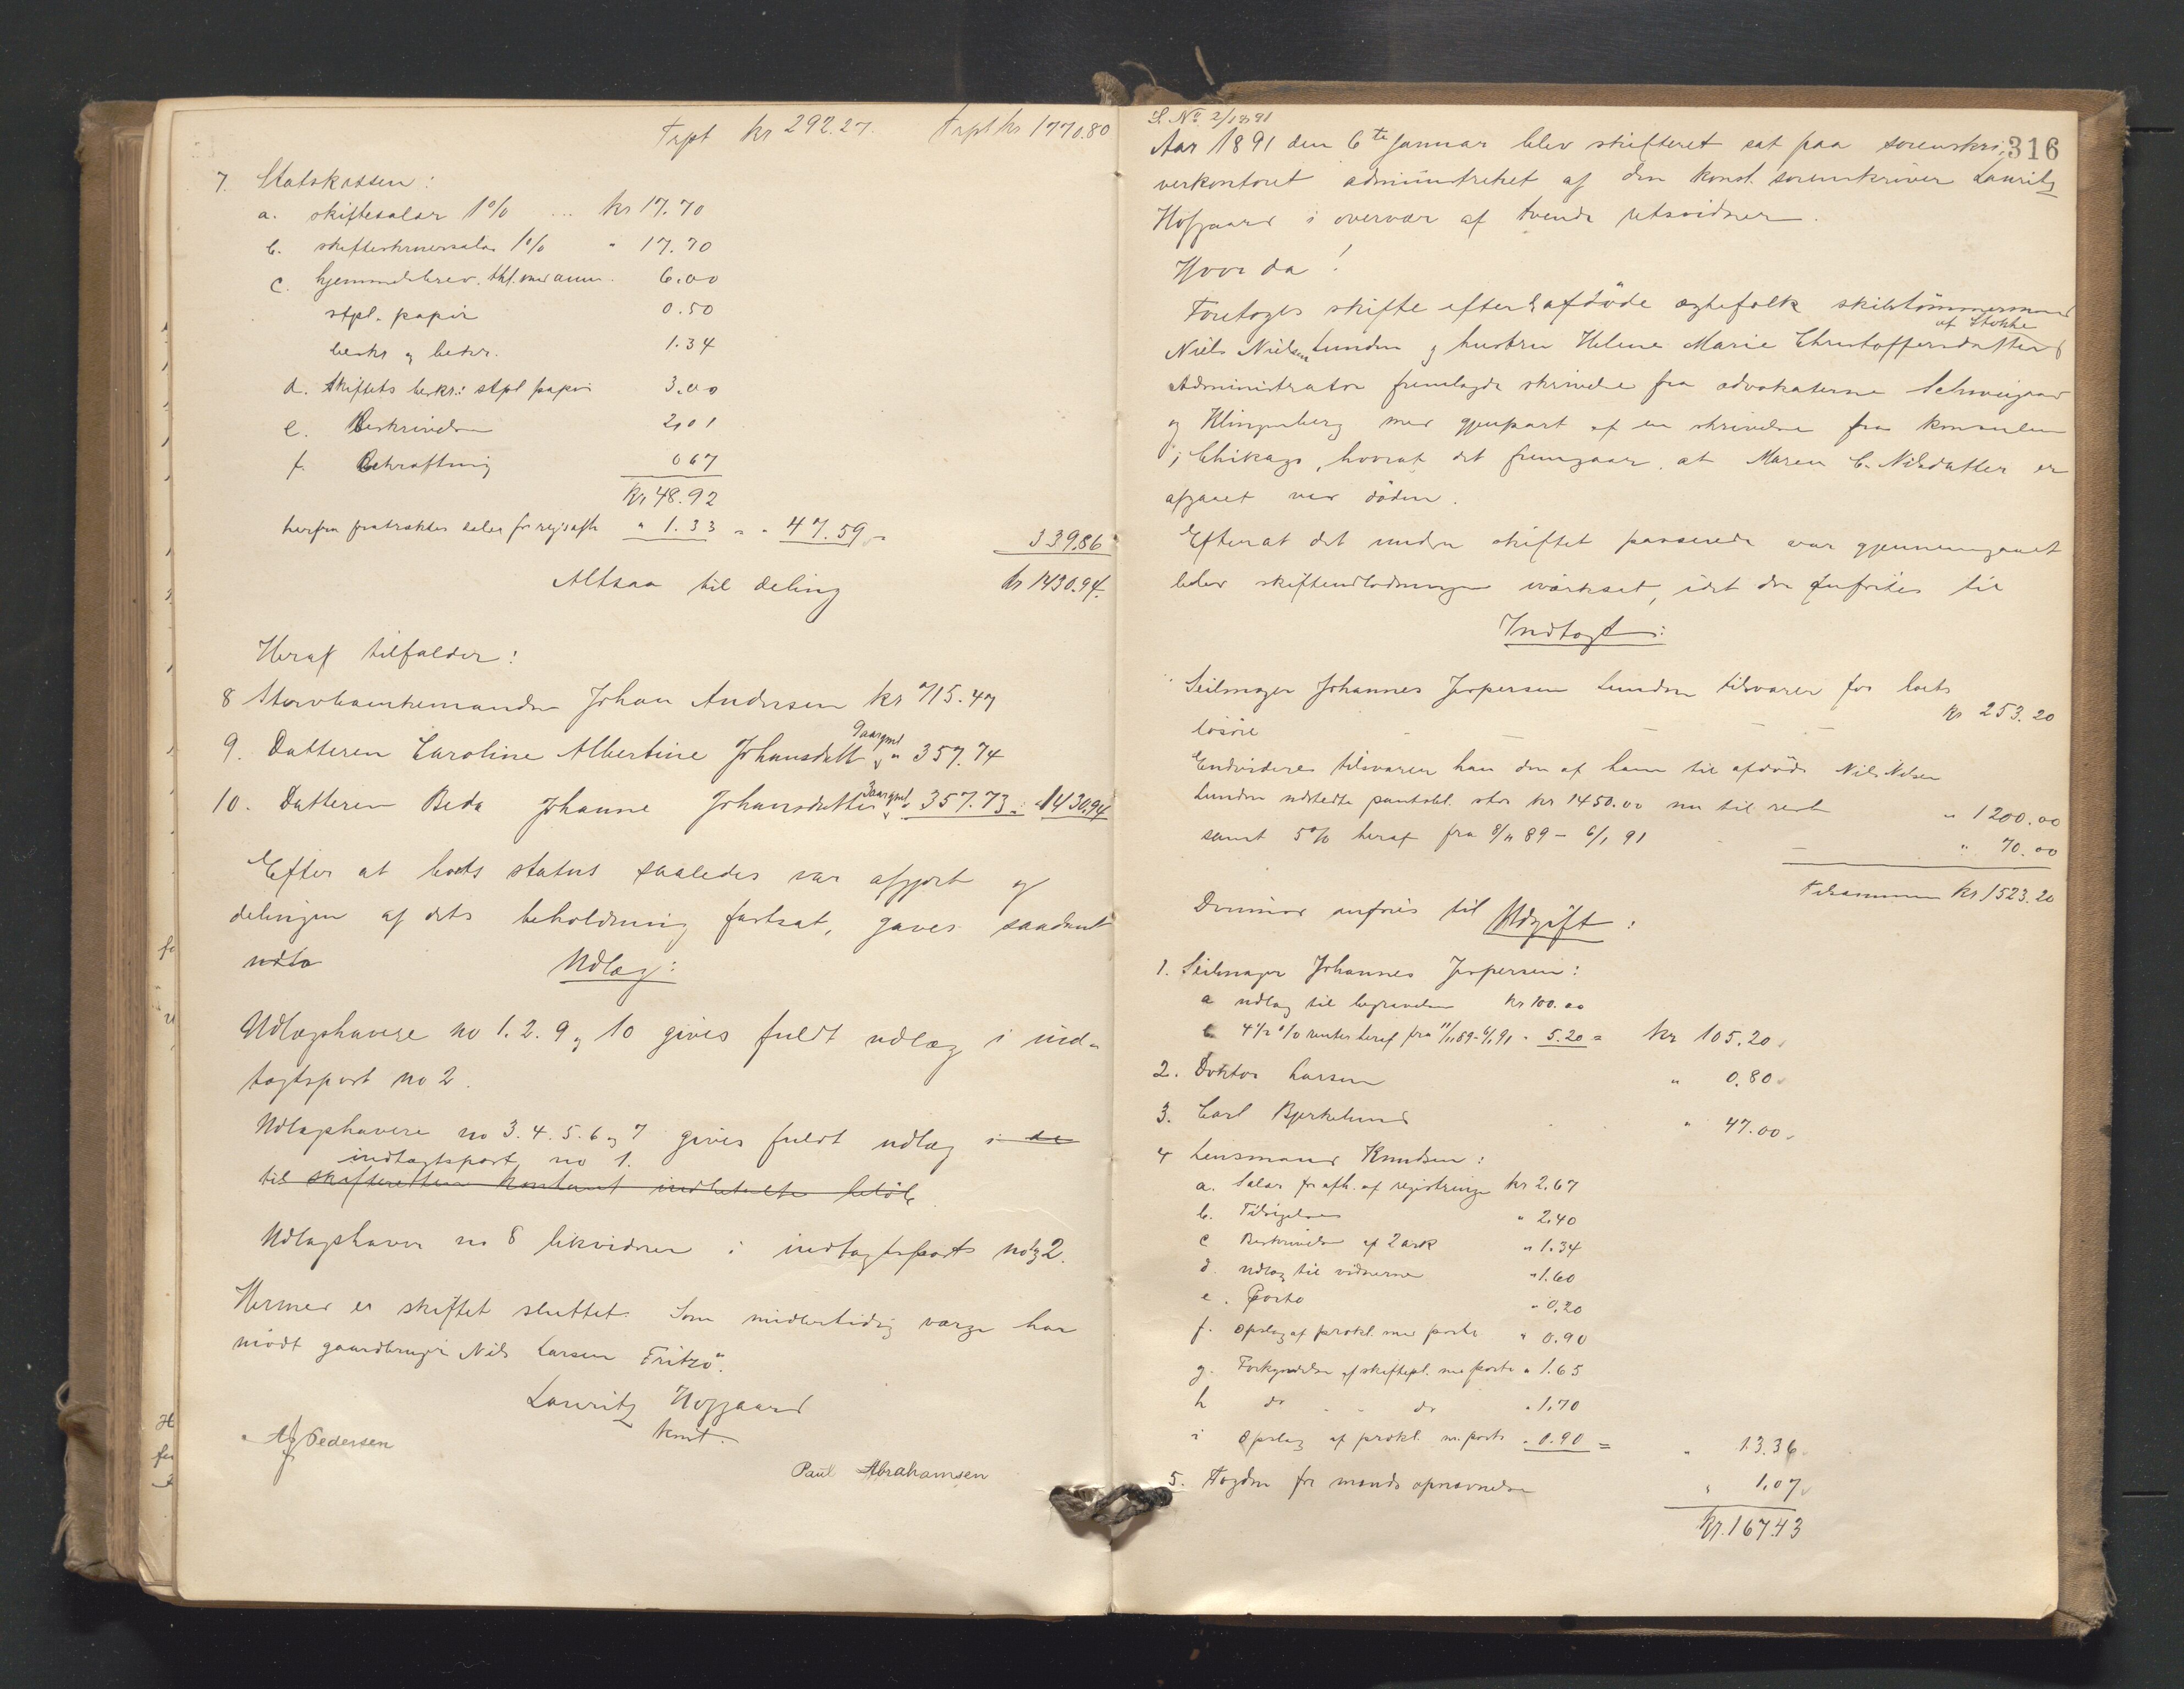 Trpt kr 292.27. Trpt kr 1770.80
7. Statskassen:
a. skiftesalær 1% ... kr 17.70
b. skifteskriversalær 1% " 17.70
c. hjemmelsbrev. thl. med ann. 6.00
stpl. papir 0.50
beskr og bekr. 1.34
d. skiftets beskr: stpl papir 3.00
e. Beskrivelsen 2,01
f. Bekræftning 0 67
kr 48.92
herfra fratrækkes salær for regis afh " 1.33 = " 47.59 = 339.86
Altsaa til deling kr 1430.94.
Heraf tilfalder:
8 Stervboenkemanden Johan Andersen kr 715.47
9. Datteren Caroline Albertine Johansdatt 9 aargml " 357.74
10. Datteren Beda Johanne Johansdatter 3 aargml " 357.73 = 1430.94
Efter at boets status saaledes var afgjort og
delingen af dets beholdning fastsat, gaves saadant
udlæ Udlæg:
Udlægshavere no 1. 2. 9 og 10 gives fuldt udlæg i ind-
tægtspost no 2.
Udlægshavere no 3. 4. 5. 6 og 7 gives fuldt udlæg i de
indtægtspost no 1.
til skifteretten kontant indbetalte beløb
Udlægshaver no 8 likviderer i indtægtsposts no 1 og 2.
Hermed er skiftet sluttet. Som midlertidig værge har
mødt gaardbruger Nils Larsen Fritzö.
Lauritz Hofgaard
konst.
Ag Pedersen
Paul Abrahamsen
S. No 2/1891
316
Aar 1891 den 6te Januar blev skifteret sat paa sorenskri-
verkontoret administreret af den konst. sorenskriver Lauritz
Hofgaard i overvær af tvende retsvidner.
Hvor da!
Foretoges skifte efter afdöde ægtefolk skibstömmermand
af Stokke
Niels Nielsen Lunden og hustru Helene Marie Christoffersdatter
Administrator fremlagde skrivelse fra advokaterne Schweigaard
og Klingenberg med gjenpart af en skrivelse fra konsulen
i Chikago, hvoraf det fremgaar, at Maren C. Nilsdatter er
afgaaet ved döden.
Efterat det under skiftet passerede var gjennemgaaet
blev skifteudlodningen iværksat, idet der anföres til
Indtægt:
Seilmager Johannes Jespersen Lunden tilsvarer for boets
lösöre kr 253.20
Endvidere tilsvarer han den af ham til afdöde Nils Nilsen
Lunden udstedte pantobl. stor kr 1450.00 nu til rest " 1200.00
samt 5% heraf fra 8/11 89 - 6/1 91 " 70.00
Tilsammen kr 1523.20
Derimod anföres til Udgift:
1. Seilmager Johannes Jespersen:
a udlæg til begravelsen kr 100.00
b 4 1/2 % renter heraf fra 11/11 89-6/1 91 " 5.20 = kr 105.20
2. Doktor Larsen " 0.80
3. Carl Bjerkelund " 47.00
4 Lensmand Knudsen:
a. Salær for afh. af registrering kr 2.67
b. Tilsigelser " 2.40
c Beskrivelse af 2 ark " 1.34
d. udlæg til vidnerne " 1.60
e. Porto " 0.20
f. Opslag af prokl. med porto " 0.90
g. Forkyndelse af skiftepl. med porto " 1.65
h do - - do " 1.70
i Opslag af prokl. m. porto " 0.90 = " 13.36
5. Fogden for mænds opnævnelse " 1.07
kr. 167.43